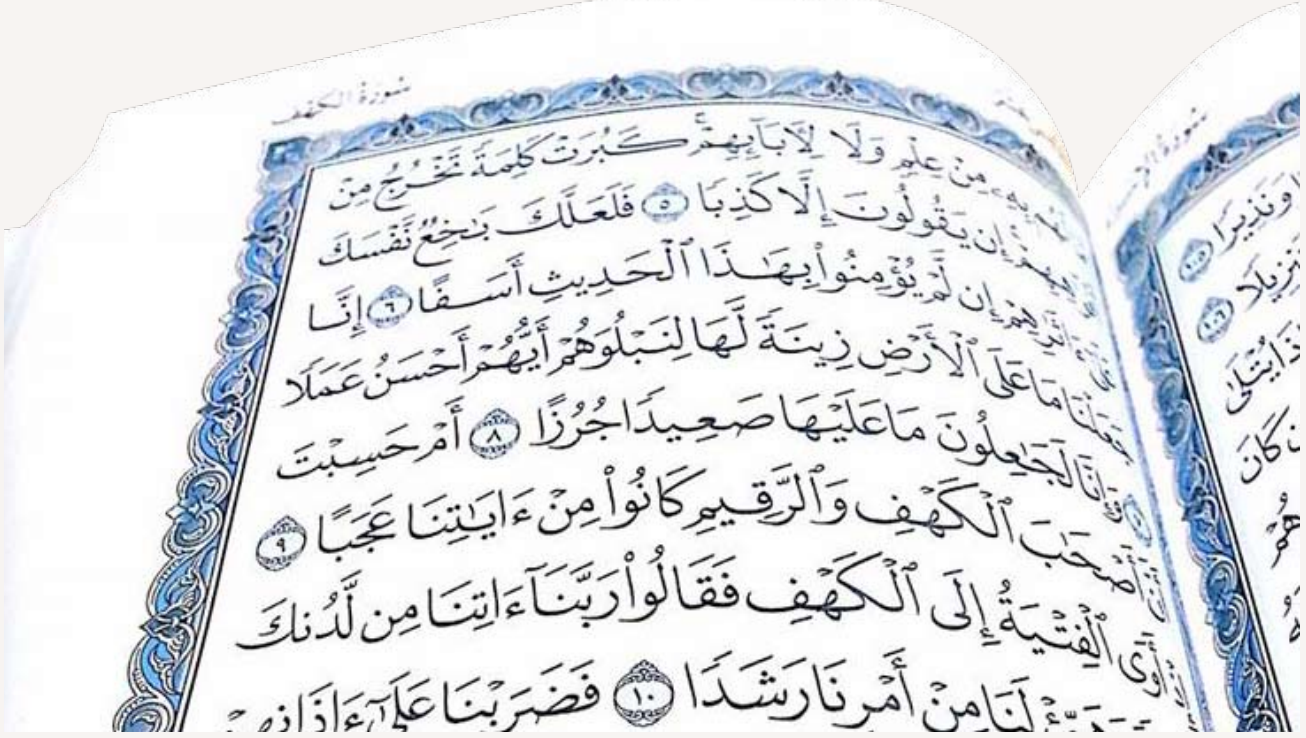 سُورَةُ الكَهْفِ
بِهِۦ مِنْ عِلْمٍ وَلَا لِأٓبَآئِهِمْۚ كَبُرَتْ كَلِمَةً تَخْرُجُ مِنْ
إِن يَقُولُونَ إِلَّا كَذِبًا ٥ فَلَعَلَّكَ بَٰخِعٌ نَّفْسَكَ
إِن لَّمْ يُؤْمِنُوا۟ بِهَٰذَا ٱلْحَدِيثِ أَسَفًا ٦ إِنَّا
مَا عَلَى ٱلْأَرْضِ زِينَةً لَّهَا لِنَبْلُوَهُمْ أَيُّهُمْ أَحْسَنُ عَمَلًا
وَإِنَّا لَجَٰعِلُونَ مَا عَلَيْهَا صَعِيدًا جُرُزًا ٨ أَمْ حَسِبْتَ
ٱلْكَهْفِ وَٱلرَّقِيمِ كَانُوا۟ مِنْ ءَايَٰتِنَا عَجَبًا ٩
ٱلْفِتْيَةُ إِلَى ٱلْكَهْفِ فَقَالُوا۟ رَبَّنَآ ءَاتِنَا مِن لَّدُنكَ
لَنَا مِنْ أَمْرِنَا رَشَدًا ١٠ فَضَرَبْنَا عَلَىٰٓ ءَاذَانِهِمْ
سُورَةُ
وَنَذِيرًا ١٠٥
١٠٦
يُتْلَىٰ
كَانَ